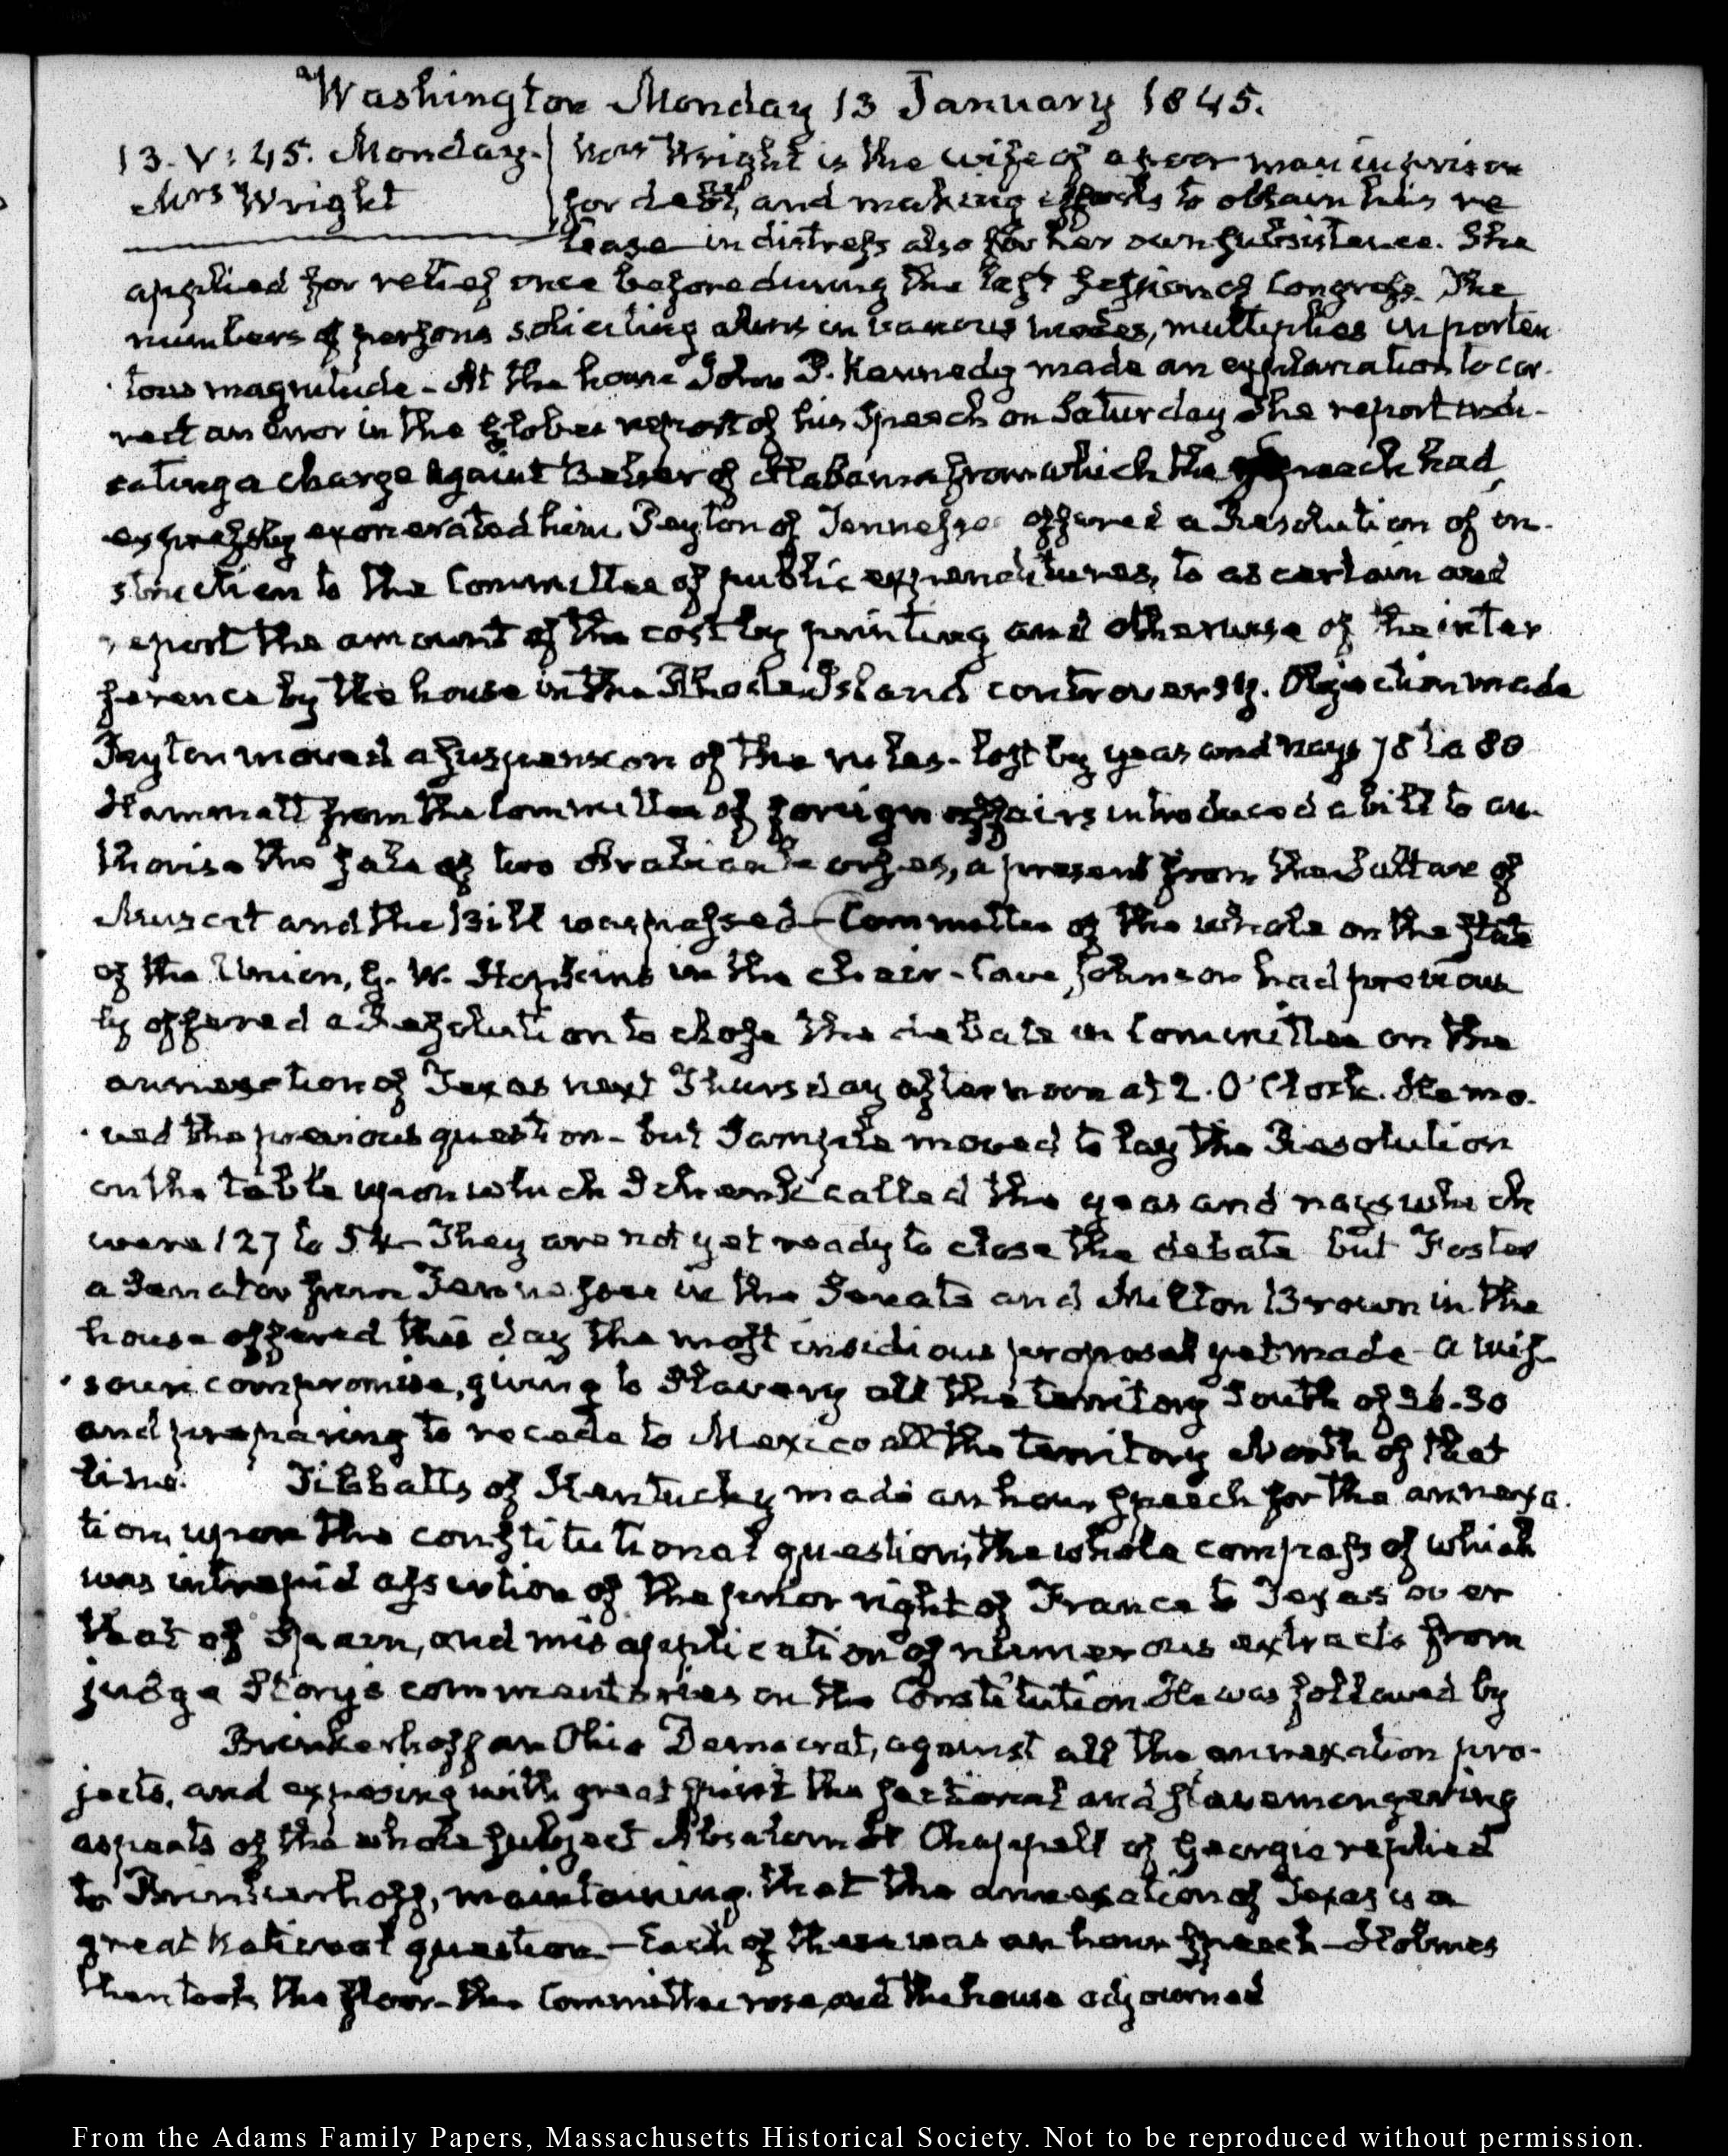 Washington Monday 13 January 1845.
13. V: 45. Monday.
Mrs Wright
Mrs Wright is the wife of a poor man in prison
for debt, and making efforts to obtain his re
lease in distress also for her own subsistence. She
applied for relief once before during the last session of Congress. The
numbers of persons soliciting alms in various modes, multiplies in porten
tous magnitude - At the house John P. Kennedy made an explanation to cor-
rect an error in the Globes report of his Speech on Saturday The report indi-
cating a charge against Belser of Alabama from which the speech had
expressly exonerated him. Peyton of Tennessee offered a Resolution of in-
struction to the Committee of public expenditures, to ascertain and
report the amount of the cost by printing and otherwise of the inter
ference by the house in the Rhode Island controversy. Objection made
Peyton moved a suspension of the rules - lost by yeas and nays 78 to 80
Hammett from the Committee of foreign affairs introduced a bill to au-
thorise the sale of two Arabian horses, a present from the Sultan of
Muscat and the Bill was passed - Committee of the whole on the state
of the Union, G. W. Hopkins in the chair - Cave Johnson had previous
ly offered a Resolution to close the debate in Committee on the
annexation of Texas next Thursday afternoon at 2. O'Clock. He mo-
ved the previous question - but Sample moved to lay the Resolution
on the table upon which Schenck called the yeas and nays which
were 127 to 54 - They are not yet ready to close the debate but Foster
a Senator from Tennessee in the Senate and Milton Brown in the
house offered this day the most insidious proposal yet made - a Mis-
souri compromise, giving to Slavery all the territory South of 36-30
and preparing to recede to Mexico all the territory North of that
line. Tibbatts of Kentucky made an hour speech for the annexa-
tion, upon the constitutional question, the whole compass of which
was intrepid assertion of the prior right of France to Texas over
that of Spain, and misapplication of numerous extracts from
judge Story's commentaries on the Constitution He was followed by
Brinkerhoff an Ohio Democrat, against all the annexation pro-
jects, and exposing with great spirit the sectional and slavemongering
aspects of the whole subject Absalom H Chappell of Georgia replied
to Brinkerhoff, maintaining that the annexation of Texas is a
great National question - Each of these was an hour speech - Holmes
then took the floor - the Committee rose, and the house adjourned
From the Adams Family Papers, Massachusetts Historical Society. Not to be reproduced without permission.